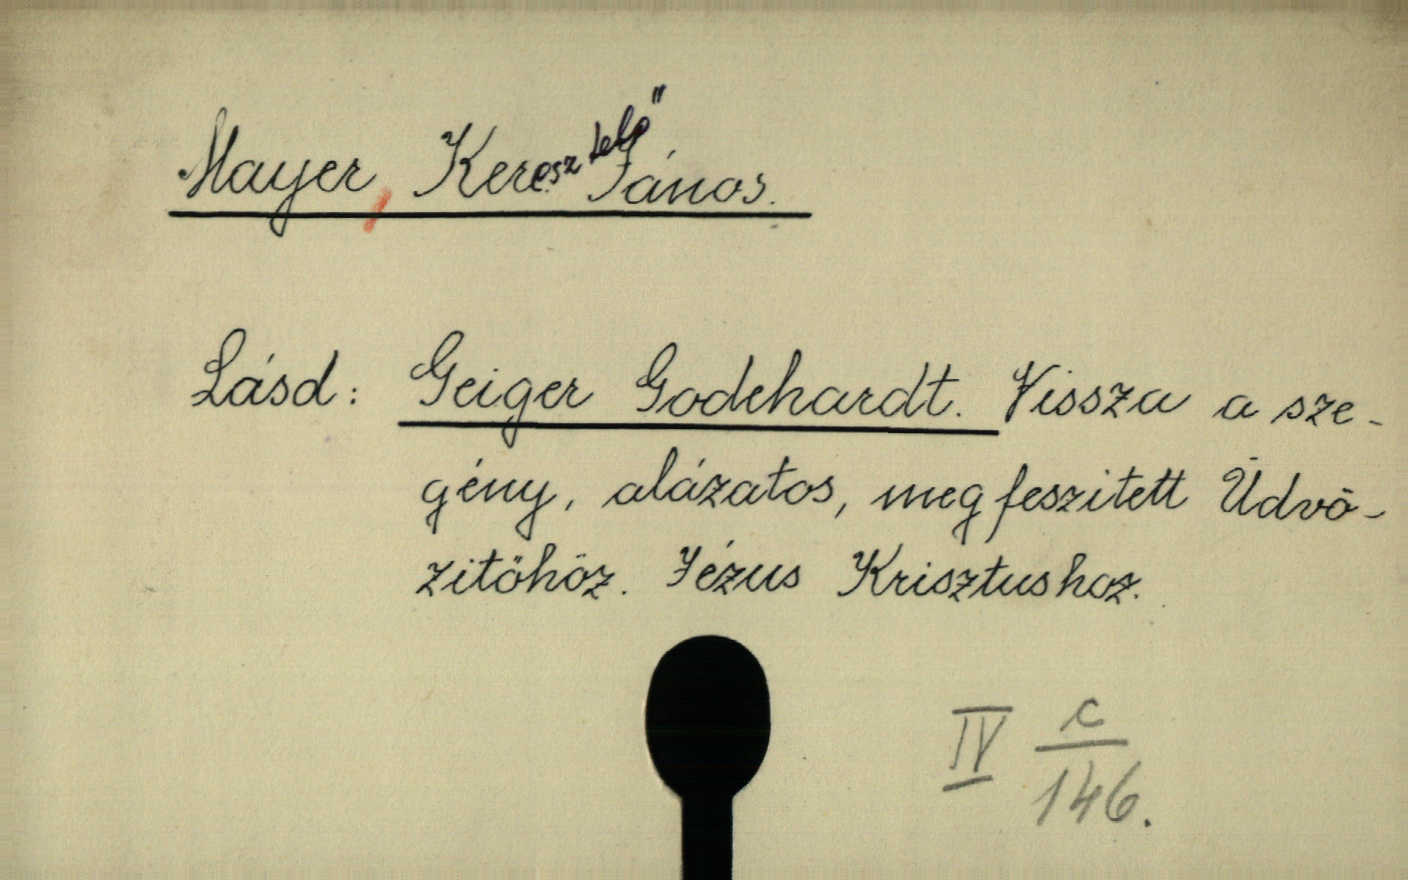 Mayer, Keresztelő János.
Lásd: Geiger Godehardt. Vissza a sze-
gény, alázatos, megfeszitett Üdvö-
zitőhöz. Jézus Krisztushoz.
IV c/146.